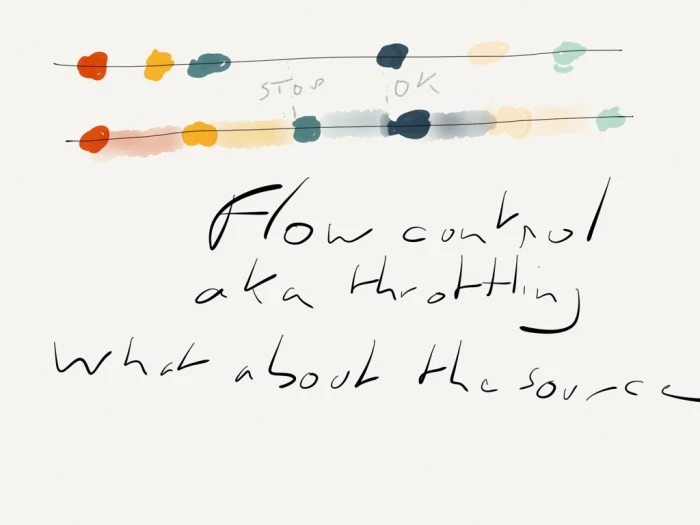 STOP OK
Flow control
aka throttling
What about the source